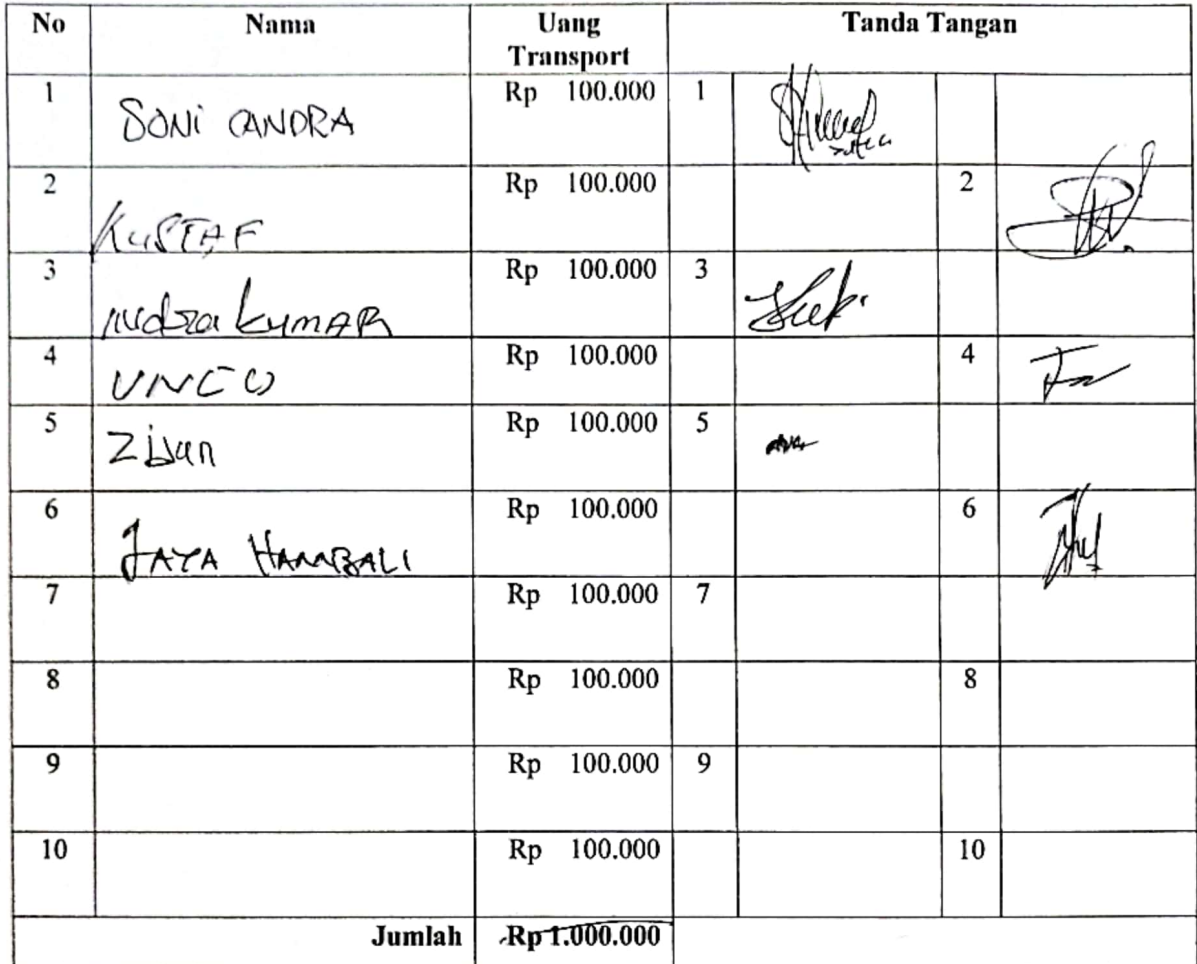 No Nama Uang Transport Tanda Tangan
1 SONI CANDRA Rp 100.000 1
2 KUSTAF Rp 100.000 2
3 Indra kumAR Rp 100.000 3
4 Rp 100.000 4
5 Rp 100.000 5
6 JAYA HAMBALI Rp 100.000 6
7 Rp 100.000 7
8 Rp 100.000 8
9 Rp 100.000 9
10 Rp 100.000 10
Jumlah Rp 1.000.000